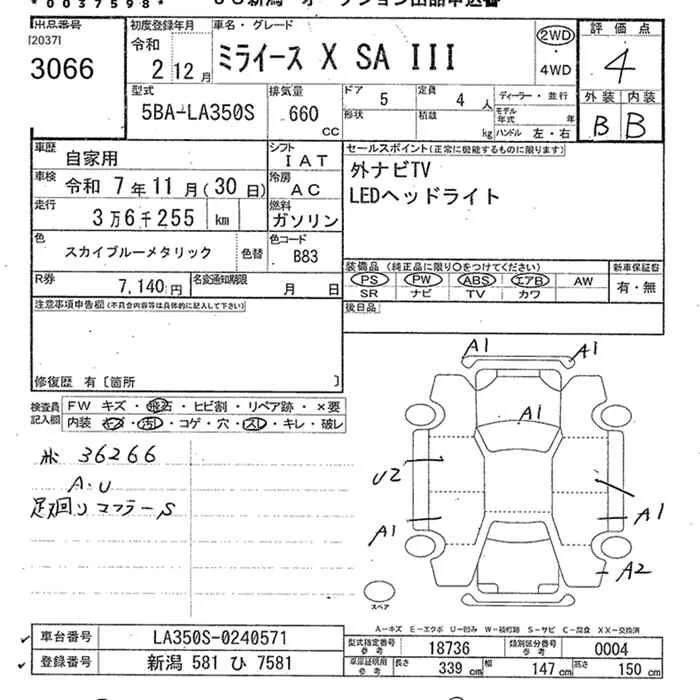 *0037598*
JU新潟 オークション出品申込書
出品番号
[2037]
3066
初度登録年月
令和
2 12月
車名・グレード
ミライース X SA III
2WD
・
4WD
評価点
4
外装 内装
B B
型式
5BA-LA350S
排気量
660
cc
ドア
5
形状
定員
4 人
積載
kg
ディーラー・並行
モデル年式 年
ハンドル 左・右
車歴 自家用
シフト
IAT
車検 令和 7年11月(30日)
冷房
AC
走行
3万6千255 km
燃料
ガソリン
色
スカイブルーメタリック
色替
色コード
B83
R券
7,140円
名変通知期限
月 日
セールスポイント(正常に機能するものに限ります)
外ナビTV
LEDヘッドライト
装備品(純正品に限り○をつけてください)
PS PW ABS エアB AW
SR ナビ TV カワ
新車保証書
有・無
後日品
注意事項申告欄(不具合内容等は具体的に記入して下さい)
修復歴 有〔箇所 〕
検査員
記入欄
FW キズ・飛石・ヒビ割・リペア跡・×要
内装 キズ・汚レ・コゲ・穴・スレ・キレ・破レ
36266
A・U
足廻り マフラーS
A1
A1
A1
U2
A1
A1
A2
スペア
A-キズ E-エクボ U-凹み W-補修跡 S-サビ C-腐食 XX-交換済
車台番号 LA350S-0240571
登録番号 新潟 581 ひ 7581
型式指定番号
参考
18736
類別区分番号
参考
0004
車庫証明用
参考
長さ 339 cm
幅 147 cm
高さ 150 cm